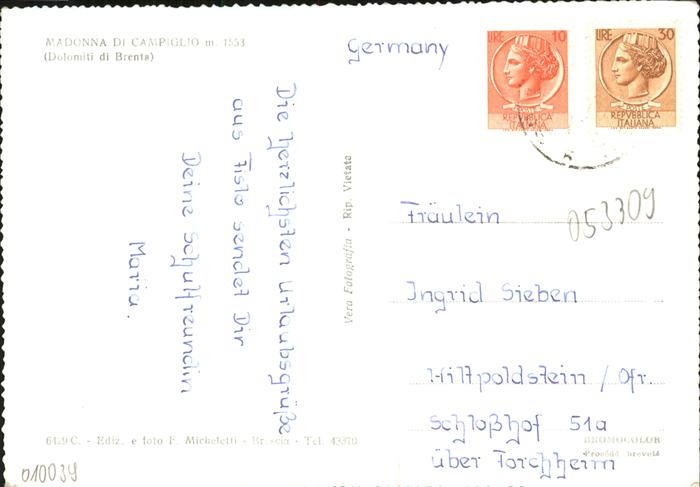 MADONNA DI CAMPIGLIO m. 1553
(Dolomiti di Brenta)
Germany
LIRE 10
POSTE
REPVBBLICA
ITALIANA
LIRE 30
POSTE
REPVBBLICA
ITALIANA
Die herzlichsten Urlaubsgrüße
aus Fisto sendet Dir
Deine Schulfreundin
Maria.
Vera Fotografia - Rip. Vietata
053309
Fräulein
Ingrid Sieben
Hiltpoldstein / Ofr.
Schloßhof 51a
über Forchheim
6429 C. - Ediz. e foto F. Micheletti - Brescia - Tel. 43370
BROMOCOLOR
Procédé breveté
010039